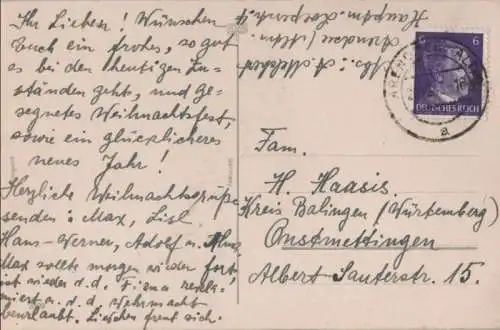 Ihr Lieben! Wünschen
Euch ein frohes, so gut
es bei den heutigen Zu-
ständen geht, und ge-
segnetes Weihnachtsfest,
sowie ein glücklicheres
neues Jahr!
Herzliche Weihnachtsgrüße
senden: Max, Lisl
Hans-Werner, Adolf u.
Max sollte morgen wieder fort
ist wieder v. d. Firma rekla-
miert u. v. d. Wehrmacht
beurlaubt. Lieschen freut sich.
Abs.: A. Melchert
Arendsee/Altm.
Hauptm.
6 6
DEUTSCHES REICH
ARENDSEE
a
Fam.
H. Haasis.
Kreis Balingen (Württemberg)
Onstmettingen
Albert Sauterstr. 15.